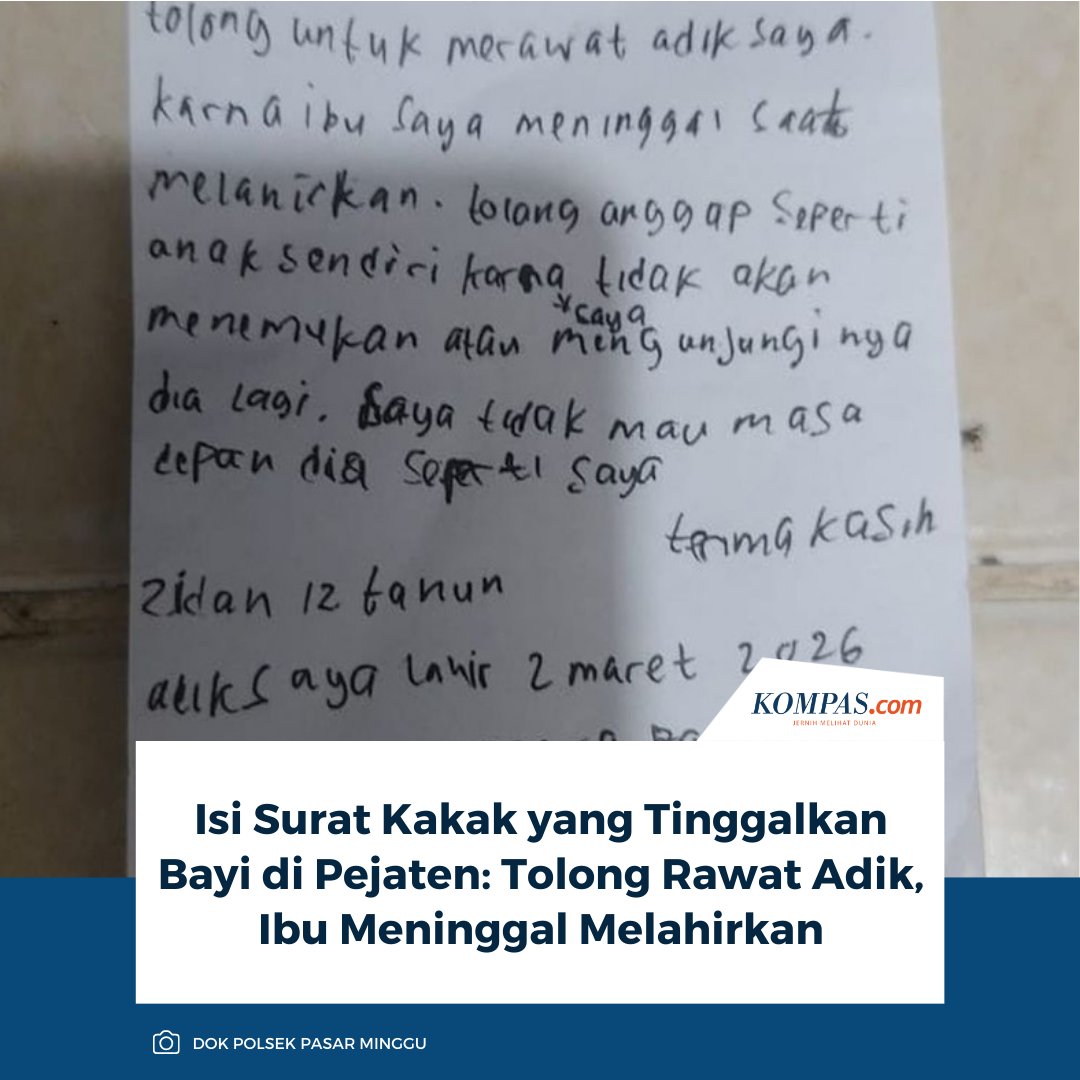 tolong untuk merawat adik saya.
karna ibu saya meninggal saat
melahirkan. tolong anggap seperti
anak sendiri karna tidak akan
*saya
menemukan atau mengunjungi nya
dia lagi. saya tidak mau masa
depan dia seperti saya
terima kasih
Zidan 12 tahun
adik saya lahir 2 maret 2026
KOMPAS.com
JERNIH MELIHAT DUNIA
Isi Surat Kakak yang Tinggalkan
Bayi di Pejaten: Tolong Rawat Adik,
Ibu Meninggal Melahirkan
DOK POLSEK PASAR MINGGU